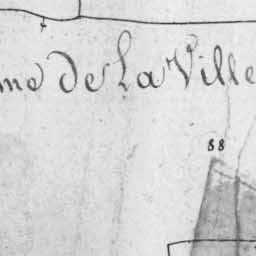 me de La Ville
88